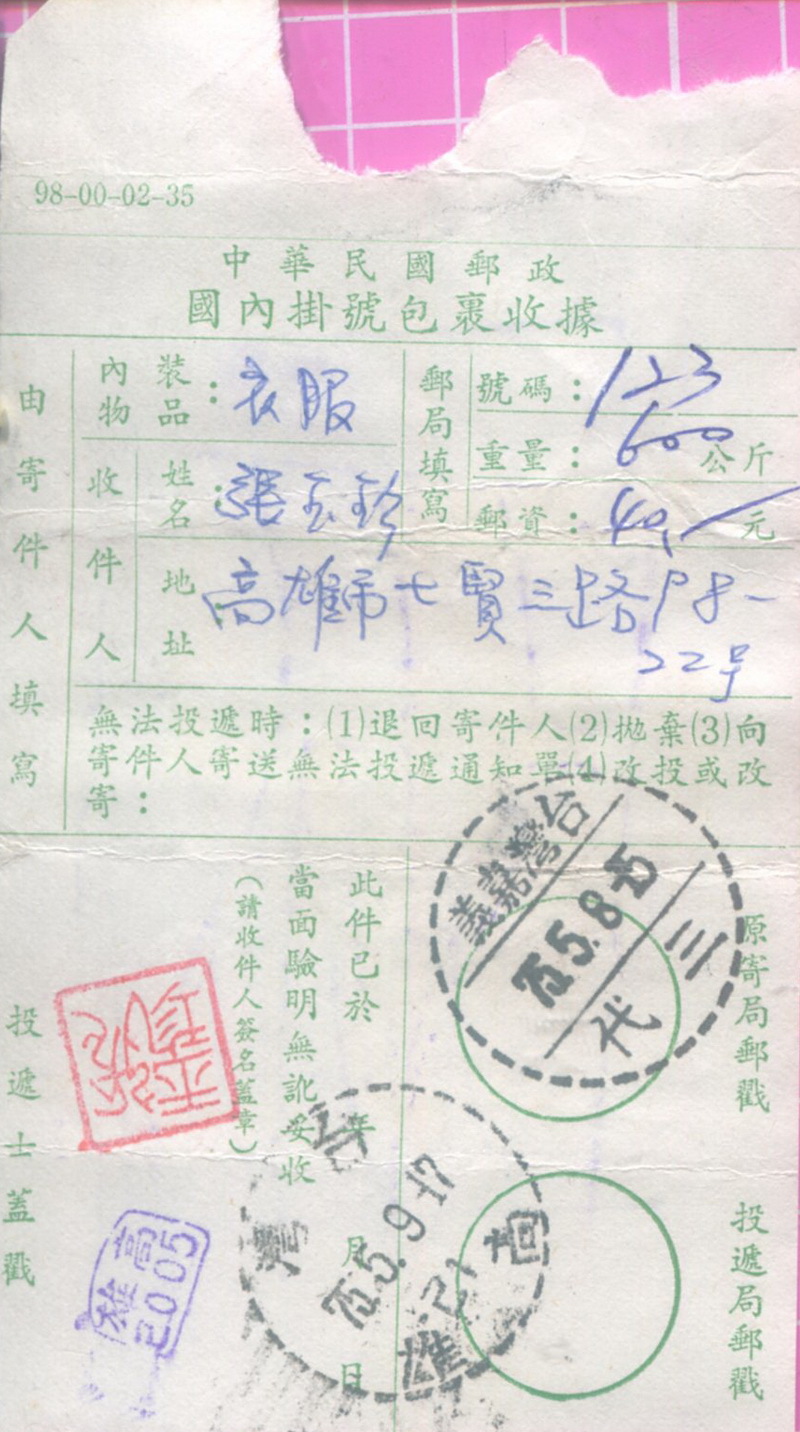 98-00-02-35
中華民國郵政
國內掛號包裹收據
由寄件人填寫
內物裝品：衣服
收件人
姓名：張玉珍
地址
高雄市七賢三路198-
22号
郵局填寫
號碼：123
重量：600公斤
郵資：40元
無法投遞時：(1)退回寄件人(2)拋棄(3)向
寄件人寄送無法投遞通知單(4)改投或改
寄：
原寄局郵戳
台灣嘉義
75.5.8-15
三
代
投遞局郵戳
此件已於
年
月
日
當面驗明無訛妥收
(請收件人簽名蓋章)
台灣
75.5.9-17
高雄
投遞士蓋戳
張玉珍
高雄
2005